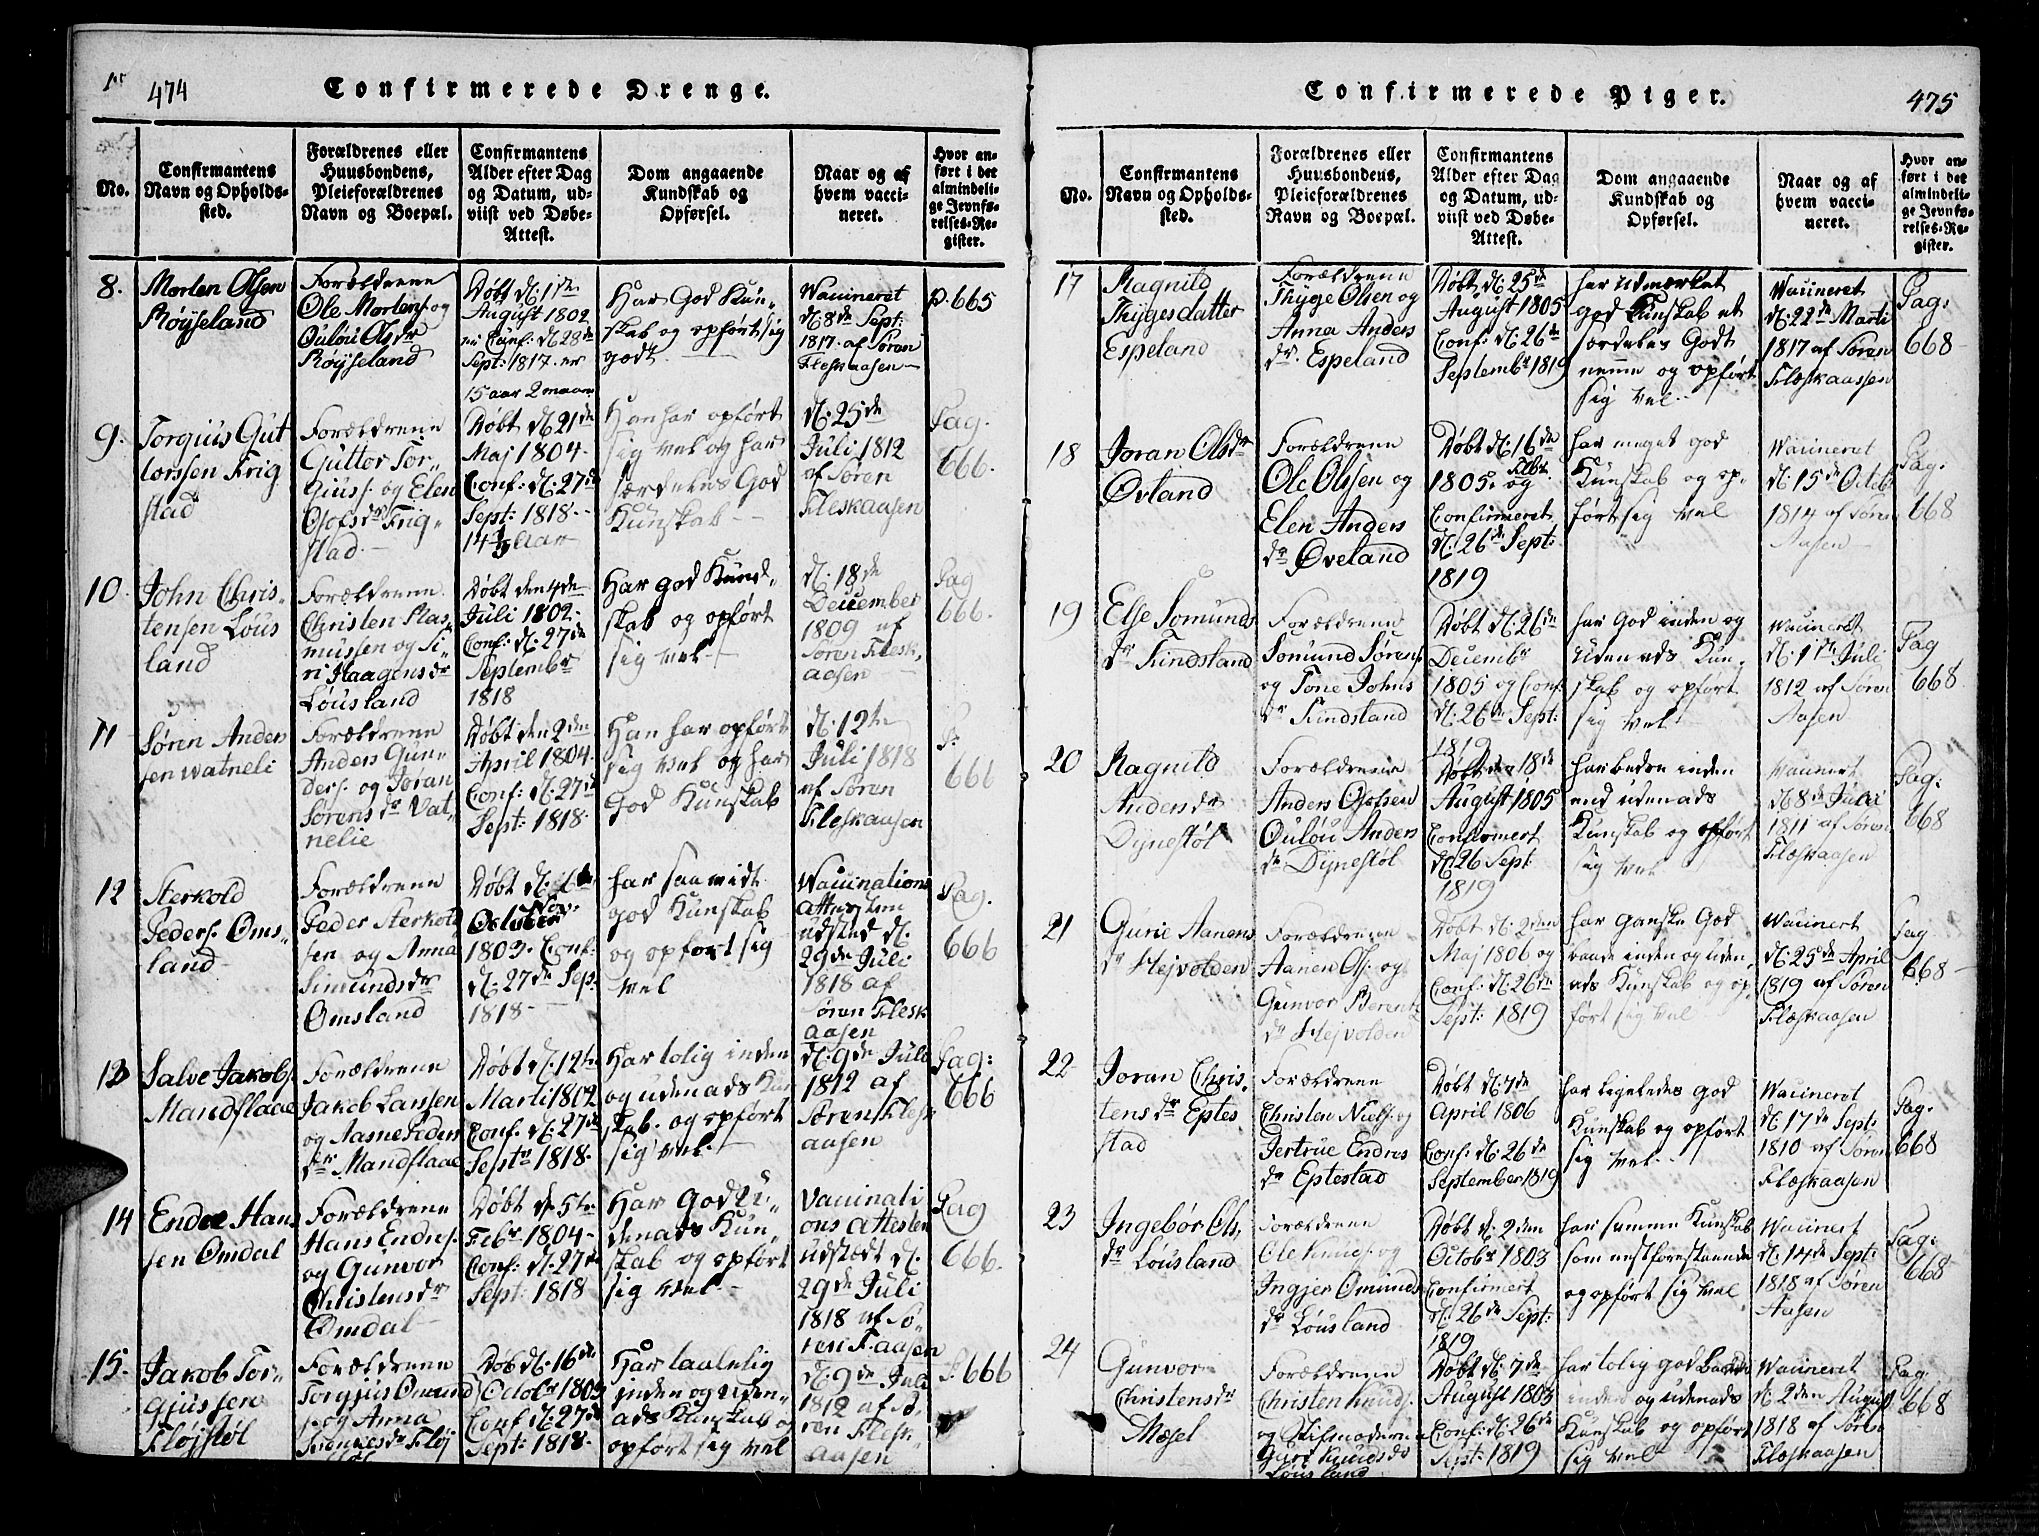 474
Confirmerede Drenge.
No.
Confirmantens
Navn og Opholds-
sted.
Forældrenes eller
Huusbondens,
Pleieforældrenes
Navn og Boepæl.
Confirmantens
Alder efter Dag
og Datum, ud-
viist ved Døbe-
Attest.
Dom angaaende
Kundskab og
Opførsel.
Naar og af
hvem vacci-
neret.
Hvor an-
ført i det
almindeli-
ge Jevnfø-
relses-Re-
gister.
8.
Morten Olsen
Røyseland
Forældrene
Ole Mortens. og
Oulöu Olsdr
Røyseland
Døbt d. 1de
August 1802
Conf: d. 28de
Sept: 1817. er
15 aar 2 maan
Har God Kun-
skab og opført sig
godt.
Waccineret
d. 8de Sept:
1817. af Søren
Fleskaasen
p. 665
9.
Torgius Gut
torssen Frig
stad
Forældrene
Guttor Tor-
giuss. og Elen
Olofsdr Frig-
stad.
Døbt d. 21de
Maj 1804.
Conf: d. 27de
Sept: 1818.
14 1/3 Aar
Han har opført
sig vel og har
særdeles God
Kunskab
d. 25de
Juli 1812
af Søren
Fleskaasen
Pag.
666.
10.
John Chris-
tensen Löus
land
Forældrene
Christen Ras-
mussen og Si-
ri Haagensdr
Löusland
Døbt den 4de
Juli 1802.
Conf: d. 27de
Septembr
1818
Har god Kund-
skab og opført
sig vel
d. 18de
December
1809 af
Søren Flesk-
aasen
Pag
666.
11
Søren Anders
sen Watneli
Forældrene
Anders Gun-
ders. og Joran
Sørensdr Vat-
nelie
Døbt den 2den
April 1804.
Conf: d. 27de
Sept: 1818.
Han har opført
sig vel og har
God Kunskab
d. 12te
Juli 1818
af Søren
Fleskaasen
P.
666
12
Sterkold
Peders. Oms-
land
Forældrene
Peder Sterkold
sen og Anna
Simundsdr
Omsland
Døbt d. 6te
Nov.
1803. Conf:
d. 27de Sep.
1818
har saavidt
god Kunskab
og opført sig
vel
Waccinations
Attesten
udsted d.
29de Juli
1818 af
Søren Flesk
aasen
Pag.
666
13
Salve Jakobs.
Mandflaae
Forældrene
Jakob Larssen
og Aasne Peders
dr Mandflaae
Døbt d. 12te
Marti 1802
Conf: d. 27de
Septr 1818.
Har tolig inden
og udenads Kun
skab. og opført
sig vel.
d. 9de Juli
1812 af
Søren Flesk
aasen
Pag:
666
14
Endre Hans
sen Omdal
Forældrene
Hans Endres.
og Gunvor
Christensdr
Omdal
Døbt d. 5te
Febr 1804
Conf: d. 27de
Sept: 1818
Har God U-
denads Kun-
skab og opført
sig vel
Vaccinati
ons Attesten
udstedt d.
29de Juli
1818 af Sø-
ren F. aasen
Pag
666.
15.
Jakob Tor-
gjussen
Fløjstøl
Forældrene
Torgjus Omund
s. og Anna
Svenkesdr Fløj
Døb d. 16de
Octobr 1803
Conf d. 27de
Sept: 1818.
Har taalelig
inden og uden-
ads Kunskab og
opført sig vel
d. 9de Juli
1812 af Sø-
ren Flesk-
aasen
P. 666
Confirmerede Piger.
475
No.
Confirmantens
Navn og Opholds-
sted.
Forældrenes eller
Huusbondens,
Pleieforældrenes
Navn og Boepæl.
Confirmantens
Alder efter Dag
og Datum, ud-
viist ved Døbe-
Attest.
Dom angaaende
Kundskab og
Opførsel.
Naar og af
hvem vacci-
neret.
Hvor an-
ført i det
almindeli-
ge Jevnfø-
relses-Re-
gister.
17
Ragnild
Thygesdatter
Espeland
Forældrene
Thyge Olsen og
Anna Anders
dr. Espeland
Døbt d. 25de
August 1805
Conf: d. 26de
Septembr 1819
har udmerket
god Kunskab et
særdeles Godt
nemme og opført
sig vel
Waccineret
d. 22de Marti
1817 af Søren
Flæskaassen
Pag:
668
18
Joran Olsdr
Øvland
Forældrene
Ole Olssen og
Elen Anders
dr Øveland
Døbt d. 16de
Febr.
1805. og
Confirmeret
d. 26de Sept:
1819
har meget god
Kunskab og op-
ført sig vel
Waccineret
d. 15de Octob
1814 af Søren
Aasen
Pag.
668
19
Else Somunds
dr Findsland
Forældrene
Somund Sørens.
og Tone Johns
dr Findsland
Døbt d. 26de
Decembr
1805 og Conf.
d. 26de Sept:
1819
har God inden og
udenads Kun-
skab og opført
sig vel
Waccineret
d. 17de Juli
1812 af Søren
Aasen
Pag
668
20
Ragnild
Andersdr
Dynestøl
Forældrene
Anders Olofsen
Oulöu Anders
dr Dynestøl
Døbt den 18de
August 1805
Confirmert
d. 26 Sept
1819
har bedre inden
end udenads
Kunskab og opført
sig vel
Waccinert
d. 8de Juli
1811 af Søren
Flæskaasen
Pag:
668
21
Gurie Aanens
dr Hejvolden
Forældrene
Aanen Ols. og
Gunvor Berents
dr Hejvolden
Døbt d. 2den
Maj 1806 og
Conf: d. 26de
Sept: 1819
har ganske God
baade inden og uden-
ads Kunskab og op-
ført sig vel
Waccinert
d. 25de April
1819 af Søren
Flæskaasen
Pag
668
22
Joran Chris-
tensdr Eptes
stad
Forældrene
Christen Niels. og
Jertrue Endres
dr Eptestad
Døbt d. 7de
April 1806
Conf: d. 26de
September 1819
har ligeledes God
Kunskab og opført
sig vel
Waccineret
d. 17de Sept:
1810 af Søren
Flæskaasen
Pag.
668
23
Ingebör Ols.
dr Löusland
Forældrene
Ole Knuds. og
Ingjer Omunds
dr Löusland
Døbt d. 2den
Octobr 1803
Confirmert
d. 26de Sept:
1819
har samme Kunskab
som nestforestaaende
og opført sig vel
Waccinert
d. 14de Sept:
1818 af Søren
Aasen
Pag:
668
24
Gunvor
Christensdr
Mæsel
Forældrene
Christen Knuds.
og Stifmoderen
Guri Knudsdr
Löusland
Døbt d. 7de
August 1803
Conf: d. 26de
Sept: 1819
har tolig god baade
inden og udenads
Kunskab og opført
sig vel
Waccineret
d. 2den August
1818 af Søren
Flæskaasen
Pag
668